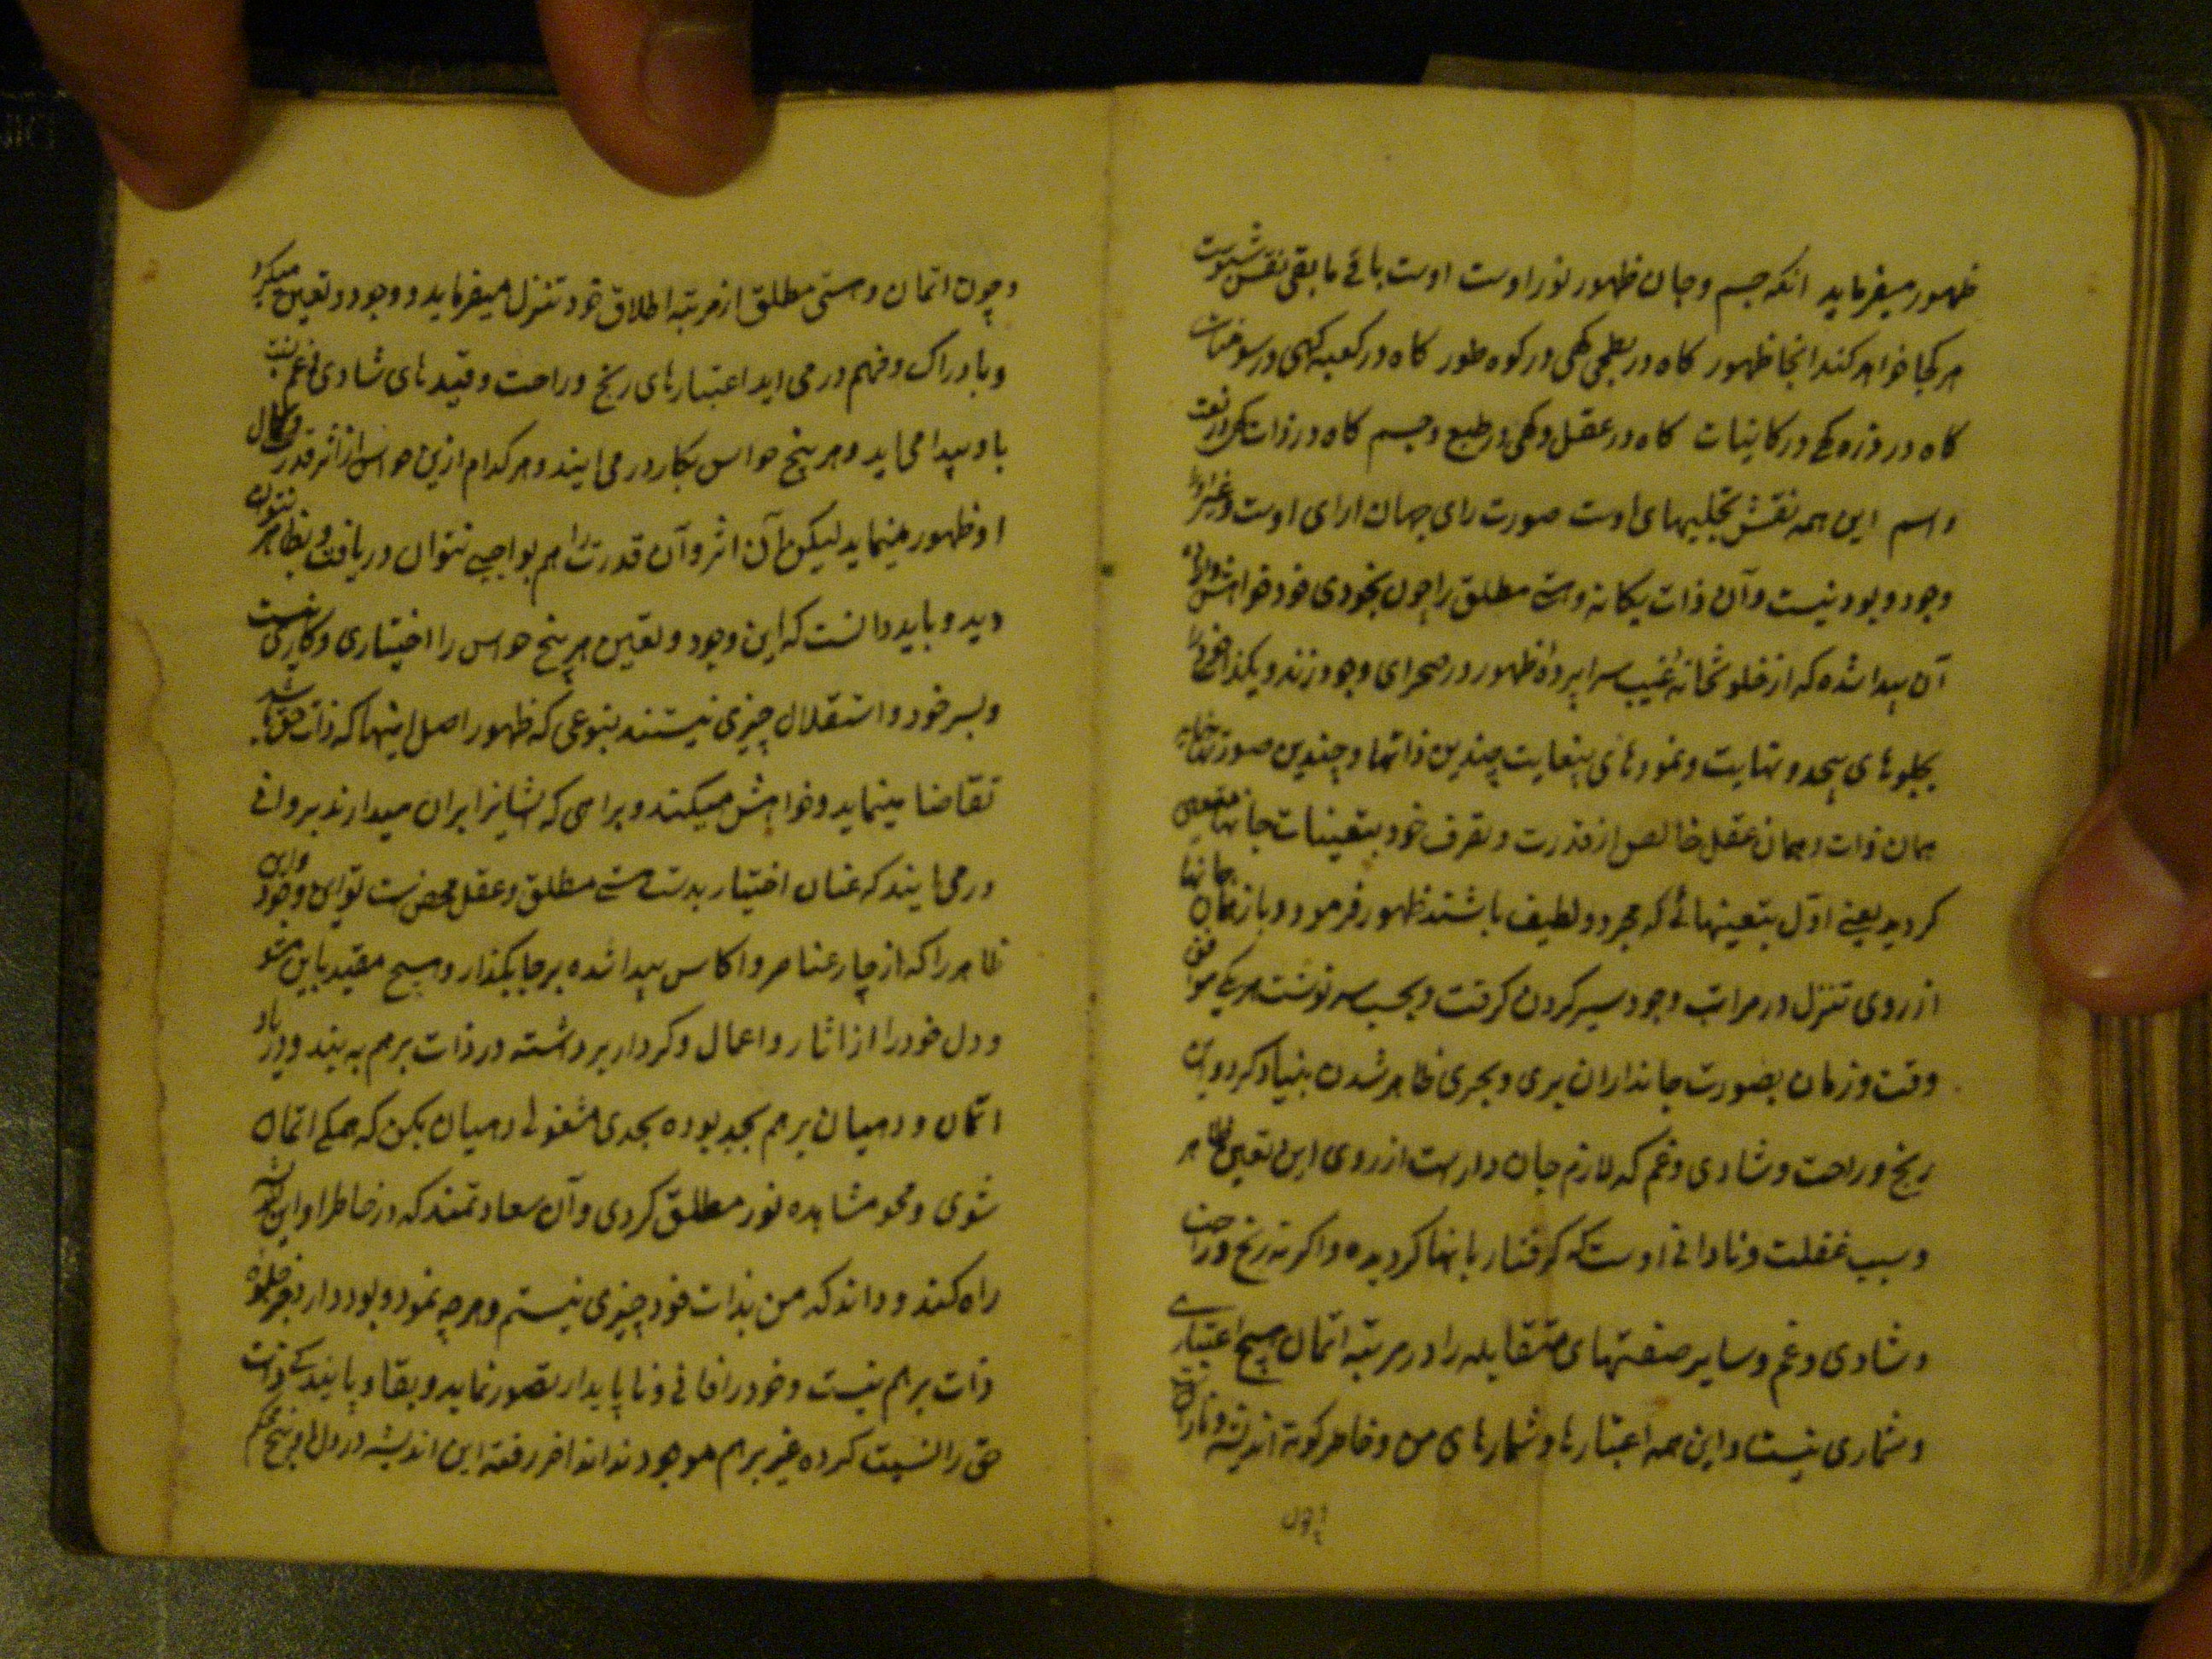 ظهور میفرماید انکه جسم و جان ظهور نور اوست اوست باقے ما بقی نقش
هر کجا خواهد کند انجا ظهور کاه در بطحی کهی در کوه طور کاه در کعبه کهی در سومنات
کاه در ذره کهے در کاینات کاه در عقل و کهی در طبع و جسم کاه در ذات
و اسم این همه نقش تجلیهای اوست صورت رای جهان ارای اوست و غیر او را
وجود و بود نیست و آن ذات یکانه و هستے مطلق را چون بخودی خود خواهش
آن پیدا شده که از خلوتخانه غیب سراپرده ظهور در صحرای وجود زند و یکذات
بجلوهای بیحد و نهایت و نمودهای بیغایت چندین ذاتها و چندین صورتها
همان ذات و همان عقل خالص از قدرت و تصرف خود بتعینات جانها
کردید یعنے اوّل بتعینهائے که مجرد و لطیف باشند ظهور فرمود و باز جانها
از روی تنزل در مراتب وجود سیر کردن کرفت و بحسب سرنوشت هر یکے موافق
وقت و زمان بصورت جانداران بری و بحری ظاهر شدن بنیاد کرد و این
رنج و راحت و شادی و غم که لازم جان دارست از روی این تعین ظاهر
و سبب غفلت و نادانی اوست که کرفتار بانها کردیده و اکر نه رنج و راحت
و شادی و غم و سایر صفتهای متقابله را در مرتبه اتمان هیچ اعتباری
و شماری نیست و این همه اعتبارها و شمارهای من و خاطر کوته اندیشه
چون
و چون اتمان و هستی مطلق از مرتبه اطلاق خود تنزل میفرماید و وجود و تعین میکیرد
و بادراک و فهم در می اید اعتبارهای رنج و راحت و قیدهای شادی و غم
باو پیدا می اید و هر پنج حواس بکار در می ایند و هر کدام ازین حواس از اثر قدرت و کمال
او ظهور مینماید لیکن آن اثر و آن قدرت را هم بواجبے نتوان دریافت و بظاهر نتوان
دید و باید دانست که این وجود و تعین هر پنج حواس را اختیاری و کاری نیست
و بسر خود و استقلال چیزی نیستند بنوعی که ظهور اصل اینها که ذات حق باشد
تقاضا مینماید و خواهش میکند و براهی که ایشانرا بران میدارند بروانی
در می ایند که عنان اختیار بدست هستے مطلق و عقل محض است تو این وجود
ظاهر را که از چار عناصر و اکاس پیدا شده بر جا بکذار و هیچ مقید باین مشو
و دل خود را از اثار و اعمال و کردار برداشته در ذات برهم به بند و در یاد
اتمان و در میان برهم بجد بوده بجدی مشغولی در میان بکن که همکے اتمان
شوی و محو مشاهده نور مطلق کردی و آن سعادتمند که در خاطر او این
راه کند و داند که من بذات خود چیزی نیستم و هر چه نمود و بود دارد بغیر جلوه
ذات برهم نیست و خود را فانی و ناپایدار تصور نماید و بقا و پایندکے ذات
حق را نسبت کرده غیر برهم موجود نداند اخر رفته رفته این اندیشه در دل او